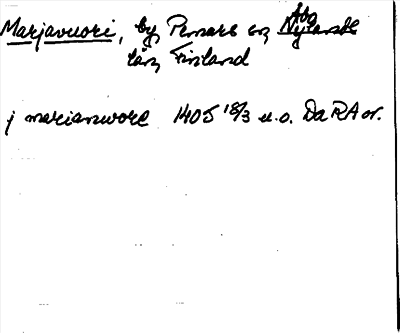 Marjavuori, by, Pemars sn, Åbo
län, Finland
j marianwore 1405 18/3 u.o. Da RA or.